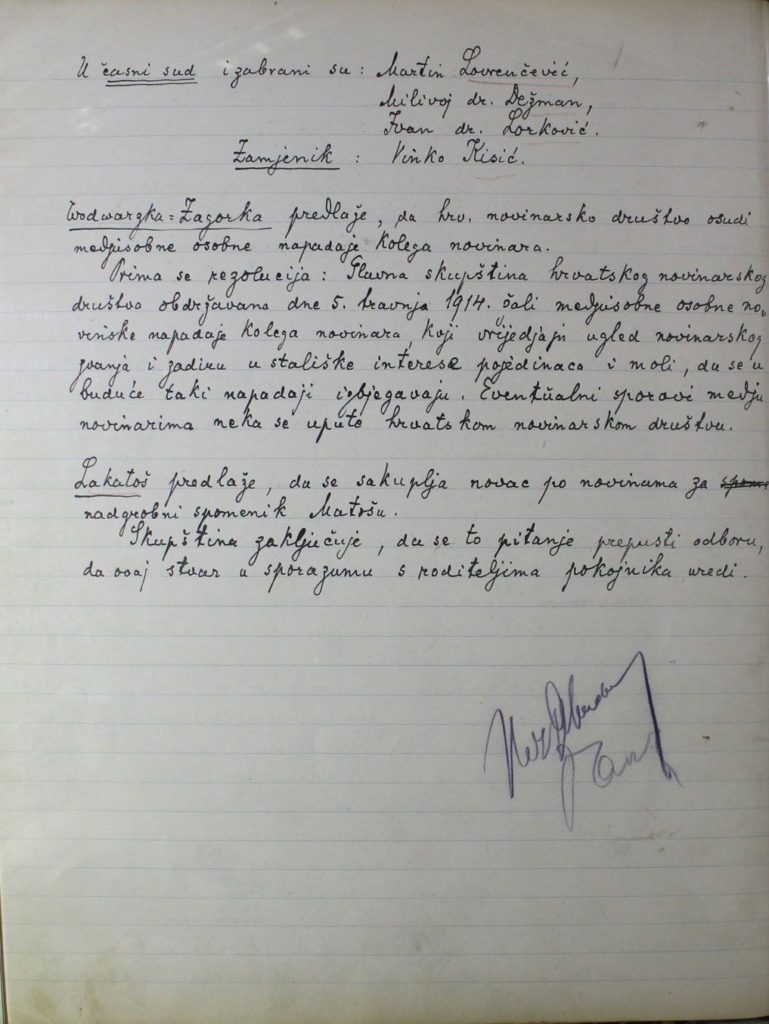 U časni sud izabrani su: Martin Lovrenčević,
Milivoj dr. Dežman,
Ivan dr. Lorković.
Zamjenik : Vinko Kisić.
Wodwargka=Zagorka predlaže, da hrv. novinarsko društvo osudi
medjusobne osobne napadaje kolega novinara.
Prima se rezolucija : Glavna skupština hrvatskog novinarskog
društva obdržavana dne 5. travnja 1914. žali medjusobne osobne no-
vinske napadaje kolega novinara, koji vrijedjaju ugled novinarskog
zvanja i zadiru u stališke interese pojedinaca i moli, da se u
buduće taki napadaji izbjegavaju. Eventualni sporovi medju
novinarima neka se upute hrvatskom novinarskom društvu.
Lakatoš predlaže, da se sakuplja novac po novinama za
nadgrobni spomenik Matošu.
Skupština zaključuje, da se to pitanje prepusti odboru,
da ovaj stvar u sporazumu s roditeljima pokojnika uredi.